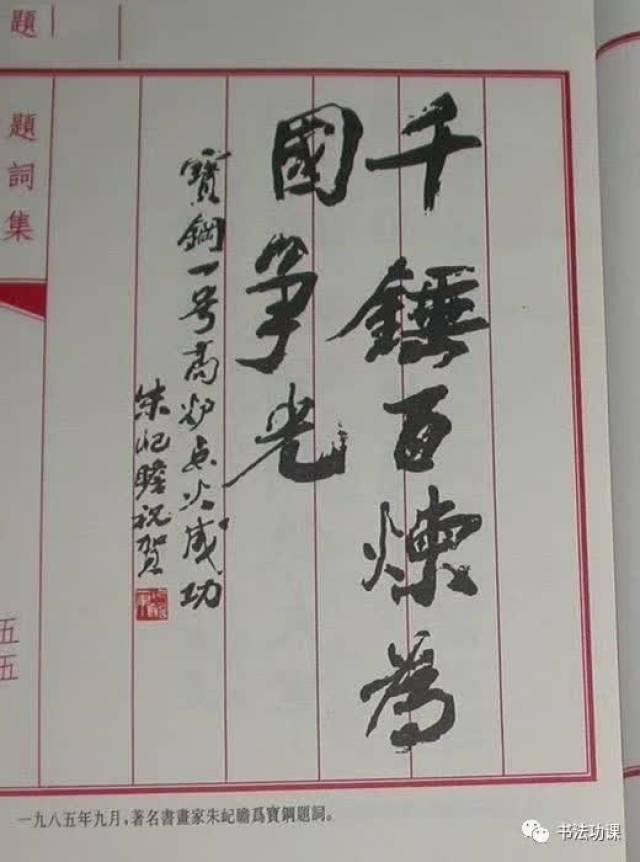 千錘百煉為
國爭光
寶鋼一号高炉点火成功
朱屺瞻祝贺
題
題詞集
五五
一九八五年九月，著名書畫家朱屺瞻爲寶鋼題詞。
书法功课